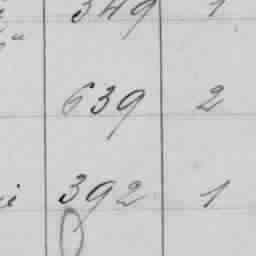 349 1
639 2
392 1